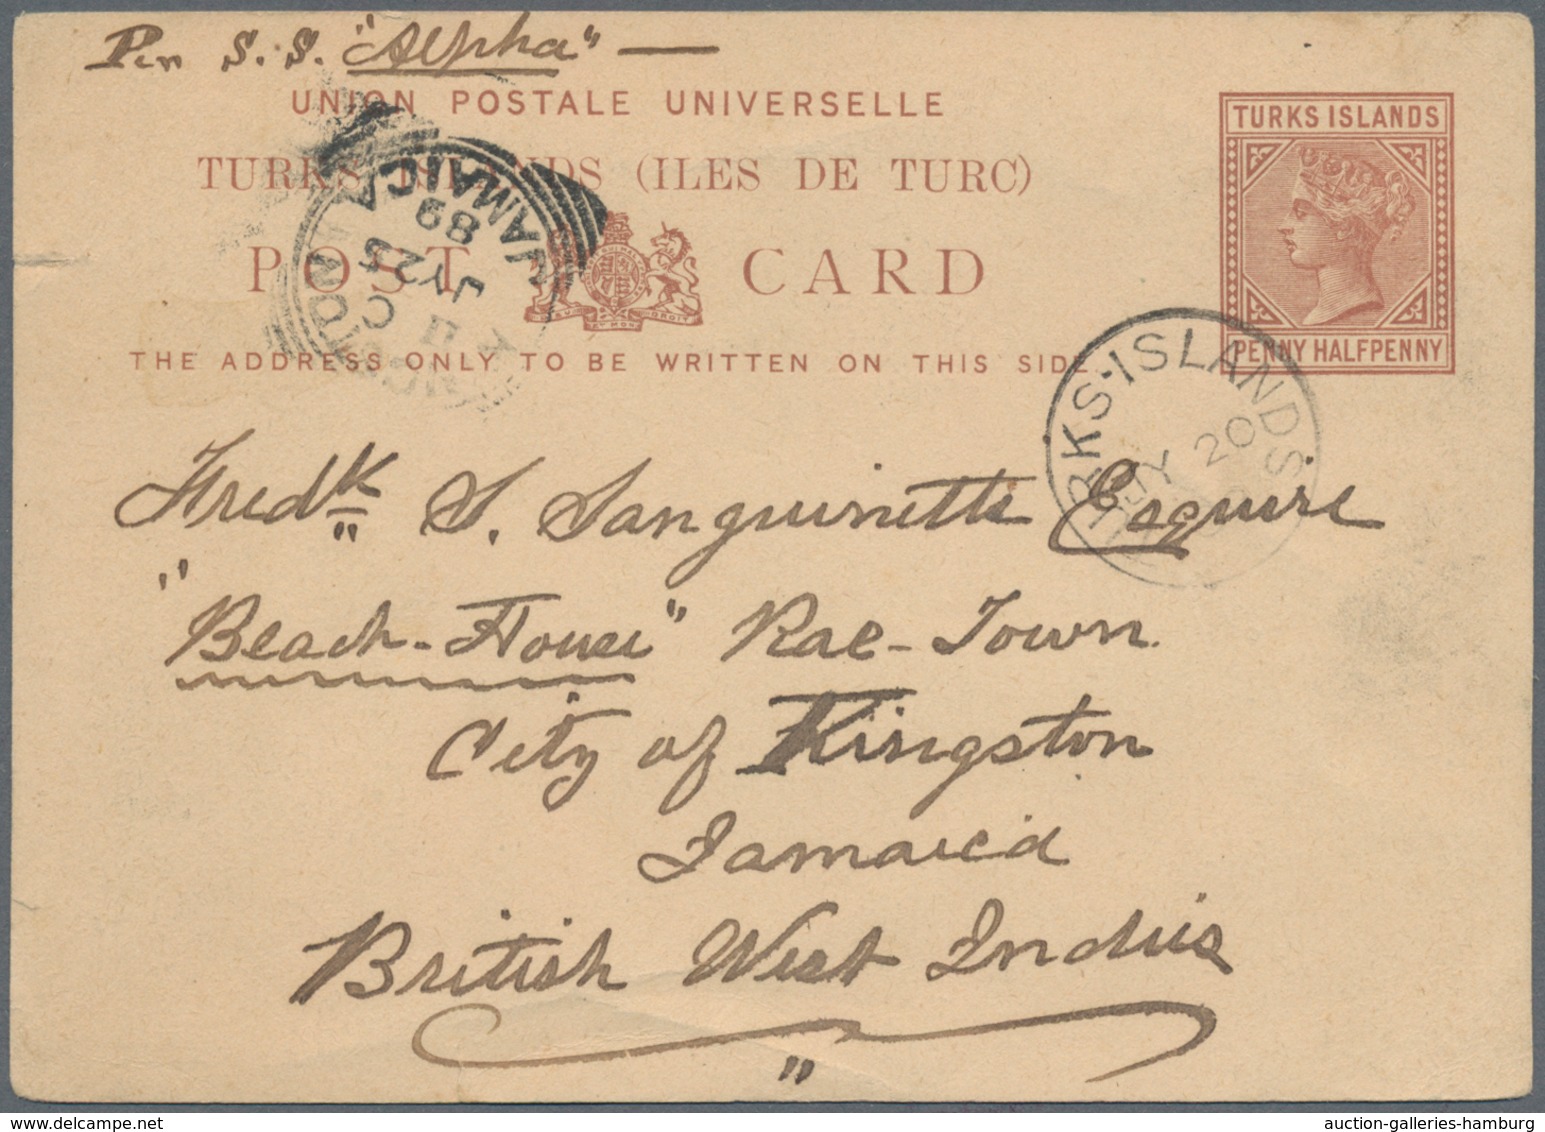 Per S. S. "Alpha" —
UNION POSTALE UNIVERSELLE
TURKS ISLANDS (ILES DE TURC)
POST CARD
THE ADDRESS ONLY TO BE WRITTEN ON THIS SIDE.
TURKS ISLANDS
PENNY HALFPENNY
KINGSTON
JAMAICA
C
JY 23
89
TURKS-ISLANDS
JY 20
Fredk S. Sanguinetti Esquire
"Beach-House" Rae-Town
City of Kingston
Jamaica
British West Indies
"
auction-galleries-hamburg